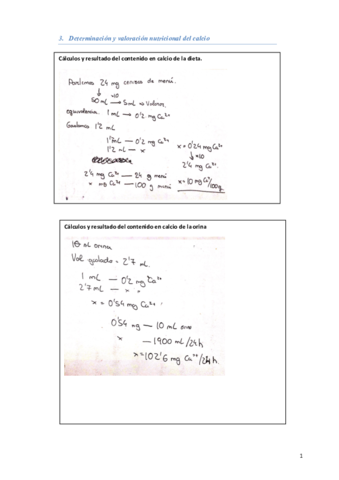 3. Determinación y valoración nutricional del calcio
Cálculos y resultado del contenido en calcio de la dieta.
Partimos 24 mg ceniza de menú.
↓ x10
50 mL → 5mL → Valorar
equivalencia 1 mL → 0'2 mg Ca²⁺
Gastamos 1'2 mL
1 mL — 0'2 mg Ca²⁺
1'2 mL — x
x = 0'24 mg Ca²⁺
↓ x10
2'4 mg Ca²⁺
2'4 mg Ca²⁺ — 24 g menú
x mg Ca²⁺ — 100 g menú
x = 10 mg Ca²⁺/100g
Cálculos y resultado del contenido en calcio de la orina
10 mL orina
Vol gastado = 2'7 mL
1 mL — 0'2 mg Ca²⁺
2'7 mL — x
x = 0'54 mg Ca²⁺
0'54 mg — 10 mL orina
x — 1900 mL/24h
x = 102'6 mg Ca²⁺/24h
1